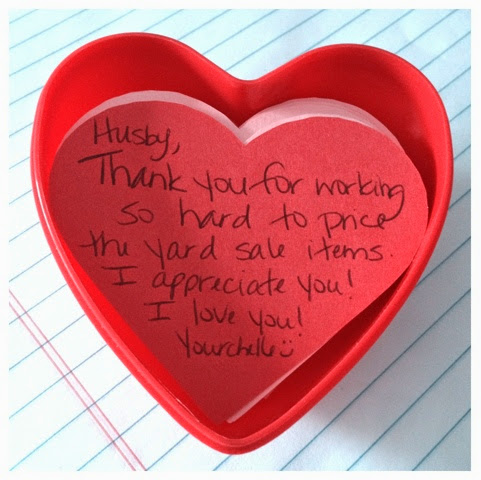 Husby,
Thank you for working
so hard to price
the yard sale items.
I appreciate you!
I love you!
Yourchelle☺